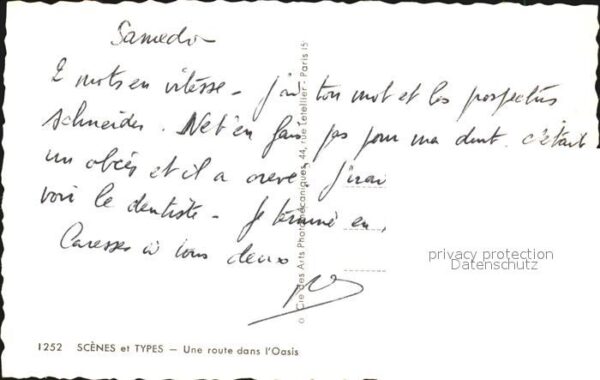 Samedi
2 mots en vitesse - j'ai ton mot et les prospectus
Schneider. Ne t'en fais pas pour ma dent. c'était
un abcès et il a crevé. J'irai
voir le dentiste - Je termine en,
Caresses à tous deux
© Cie des Arts Photomécaniques, 44, rue Letellier - Paris 15
privacy protection
Datenschutz
1252 SCÈNES et TYPES — Une route dans l'Oasis